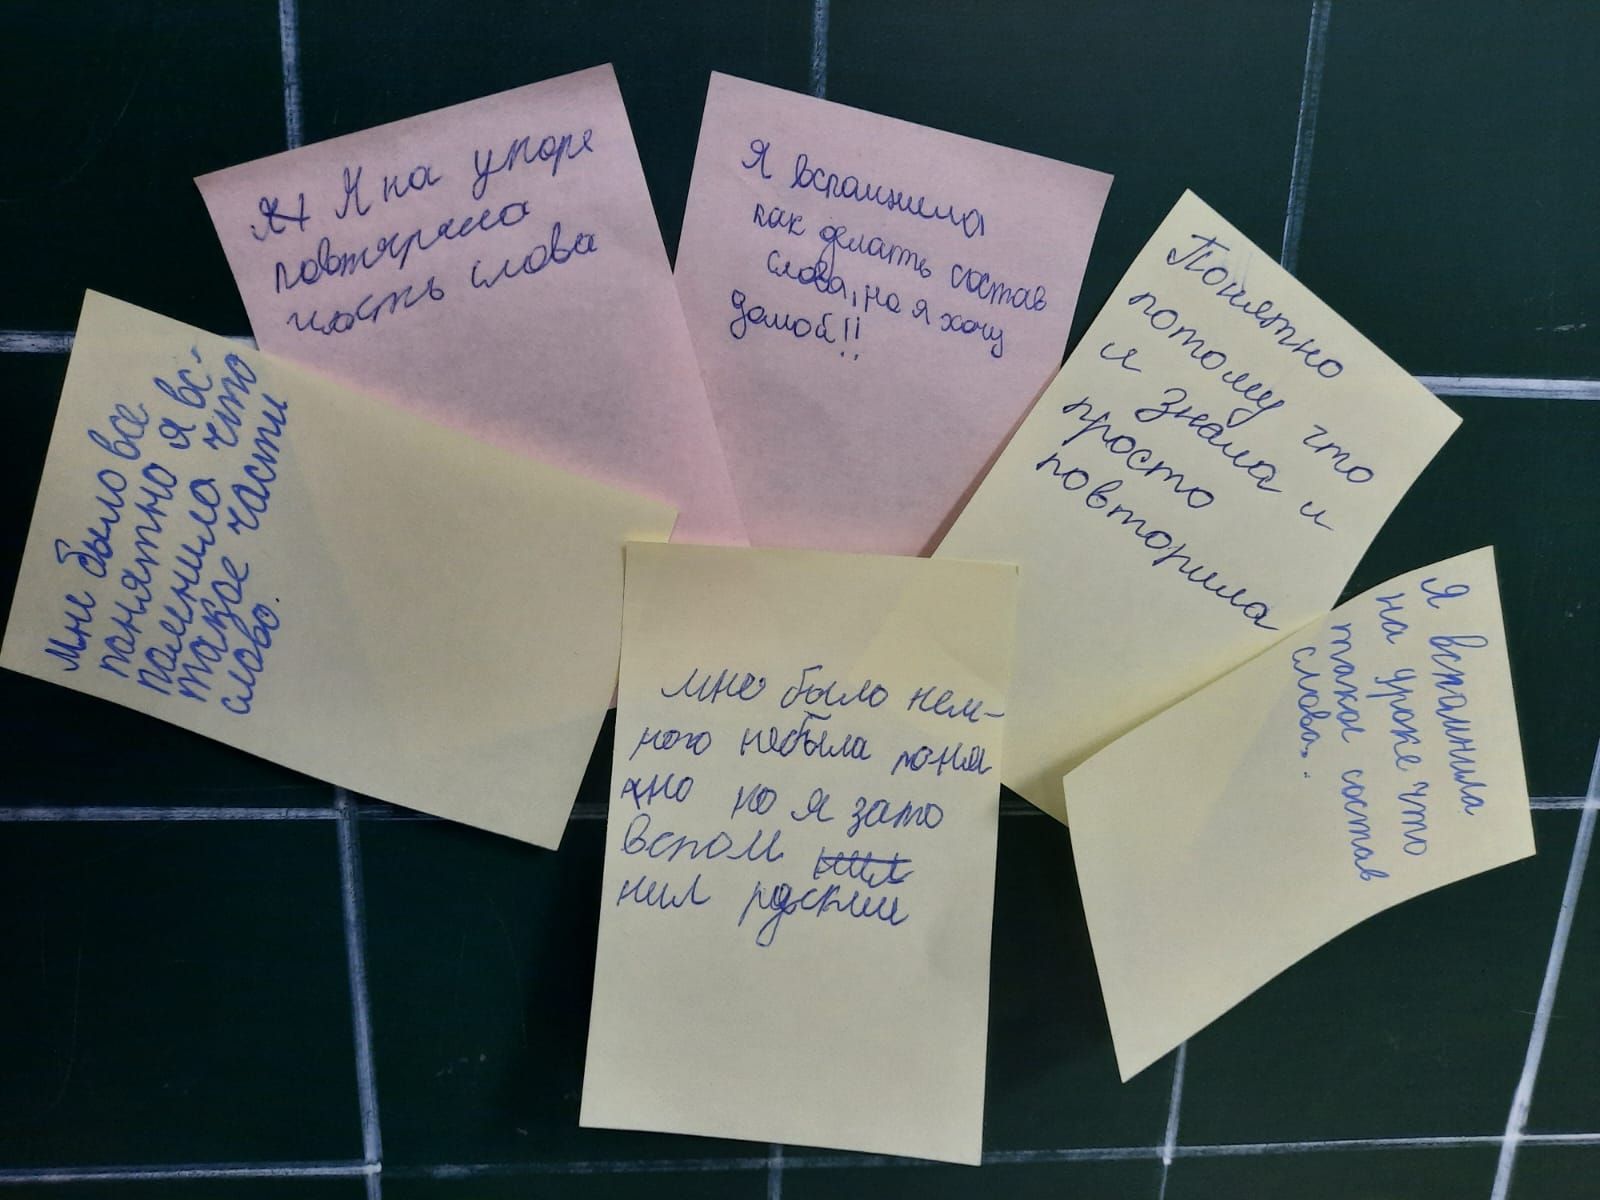 Я Я на уроре
повтярела
часть слова
Я вспомнила
как делать состав
слова, но я хочу
домой!!
Понятно
потому что
я знала и
просто
повторила
Мне было все
понятно я вс-
помнила что
такое части
слово.
мне было нем-
ного небыла поня
хно но я зато
вспом нил
нил рускии
Я вспомнила
на уроке что
такое состав
слова.